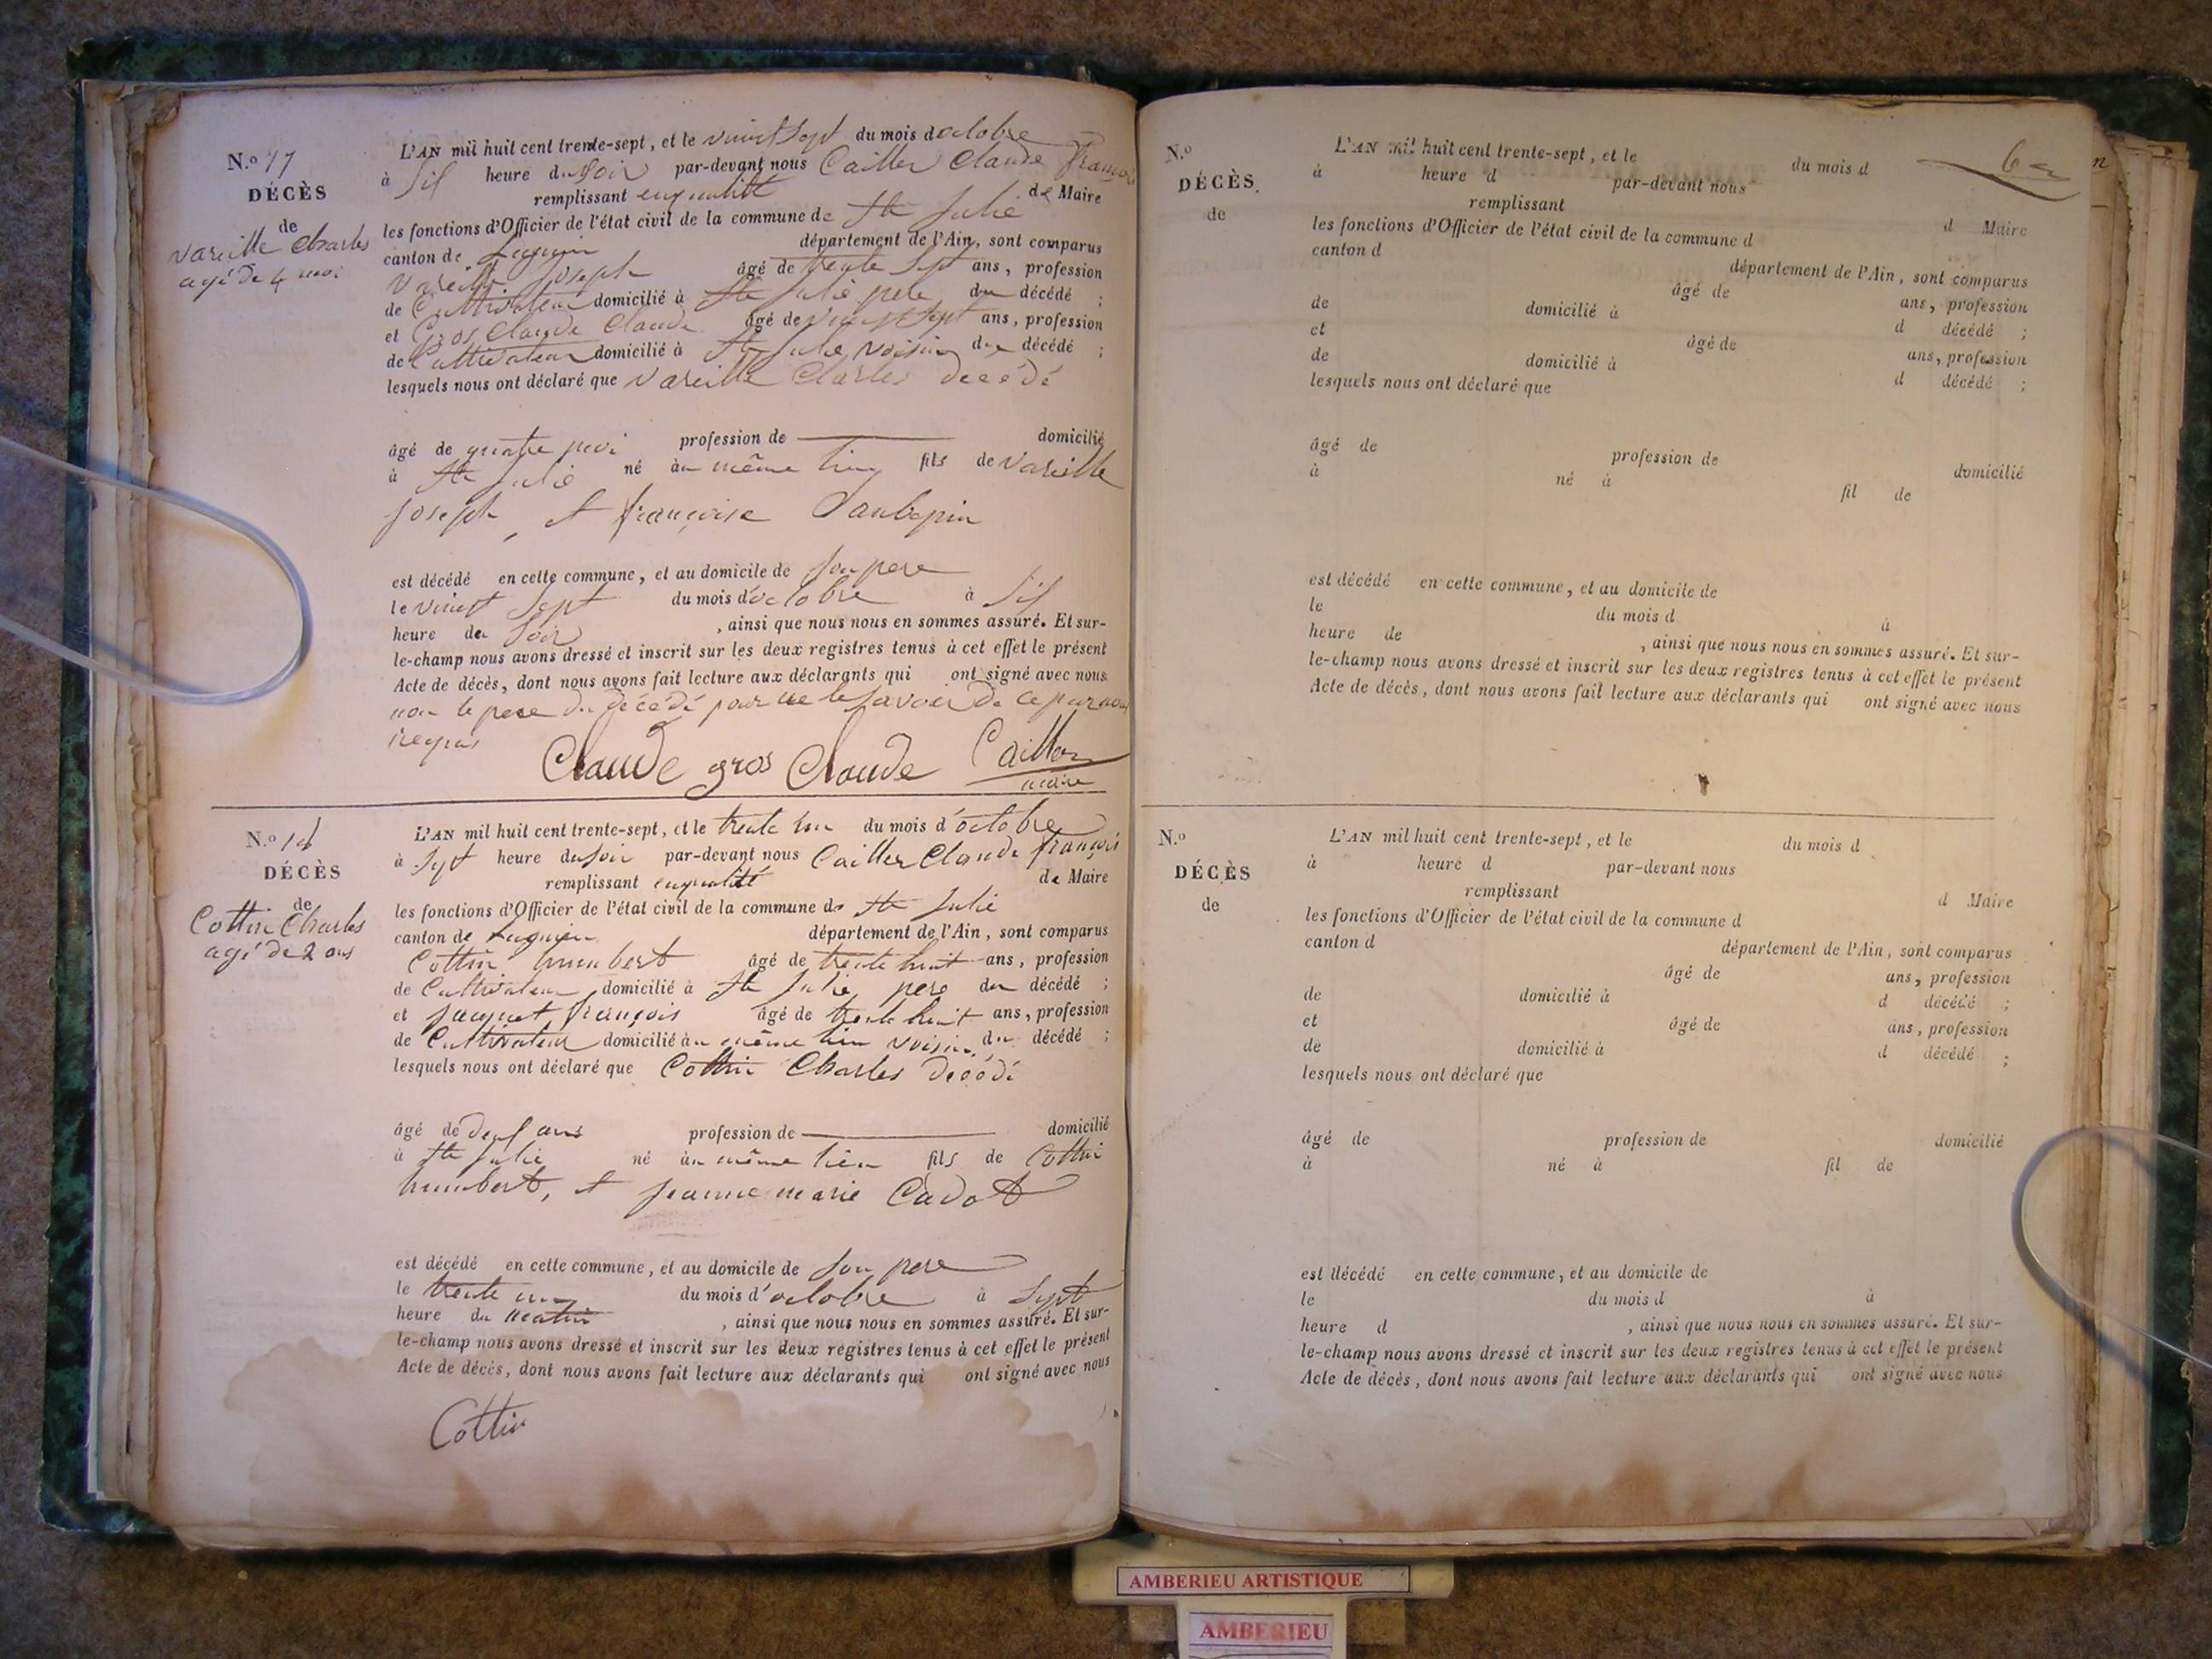 N.º 17
DÉCÈS
de
Vareille Charles
agé de 4 moi
L'AN mil huit cent trente-sept, et le vint sept du mois d octobre
à six heure du soir par-devant nous Cailler Claude François
remplissant en qualité de Maire
les fonctions d'Officier de l'état civil de la commune de Ste Julie
canton de Lagnieu département de l'Ain, sont comparus
Vareille Joseph âgé de trente sept ans, profession
de Cultivateur domicilié à Ste Julie pere du décédé ;
et Gros Claude Claude âgé de vingt sept ans, profession
de Cultivateur domicilié à Ste Julie voisin du décédé ;
lesquels nous ont déclaré que Vareille Charles decédé
âgé de quatre moi profession de domicilié
à Ste Julie né au même lieu fils de Vareille
Joseph, et françoise Daubepin
est décédé en cette commune, et au domicile de son pere
le vint sept du mois d'octobre à six
heure du soir , ainsi que nous nous en sommes assuré. Et sur-
le-champ nous avons dressé et inscrit sur les deux registres tenus à cet effet le présent
Acte de décès, dont nous avons fait lecture aux déclarants qui ont signé avec nous
non le pere du décédé pour ne le savoir de ce par nous
requis
Claude gros Claude Cailler
maire
N.º 18
DÉCÈS
de
Cottin Charles
agé de 2 ans
L'AN mil huit cent trente-sept, et le trente un du mois d'octobre
à sept heure du soir par-devant nous Cailler Claude françois
remplissant en qualité de Maire
les fonctions d'Officier de l'état civil de la commune de Ste Julie
canton de Lagnieu département de l'Ain, sont comparus
Cottin humbert âgé de trente huit ans, profession
de Cultivateur domicilié à Ste Julie pere du décédé ;
et Jacquet françois âgé de trente huit ans, profession
de Cultivateur domicilié au même lieu voisin du décédé ;
lesquels nous ont déclaré que Cottin Charles decédé
âgé de deux ans profession de domicilié
à Ste Julie né au même lieu fils de Cottin
humbert, et jeanne marie Cadot
est décédé en cette commune, et au domicile de son pere
le trente un du mois d'octobre à sept
heure du matin , ainsi que nous nous en sommes assuré. Et sur-
le-champ nous avons dressé et inscrit sur les deux registres tenus à cet effet le présent
Acte de décès, dont nous avons fait lecture aux déclarants qui ont signé avec nous
Cottin
N.º
DÉCÈS
de
L'AN mil huit cent trente-sept, et le du mois d
à heure d par-devant nous
remplissant d Maire
les fonctions d'Officier de l'état civil de la commune d
canton d département de l'Ain, sont comparus
âgé de ans, profession
de domicilié à d décédé ;
et âgé de ans, profession
de domicilié à d décédé ;
lesquels nous ont déclaré que
âgé de profession de domicilié
à né à fil de
est décédé en cette commune, et au domicile de
le du mois d à
heure de , ainsi que nous nous en sommes assuré. Et sur-
le-champ nous avons dressé et inscrit sur les deux registres tenus à cet effet le présent
Acte de décès, dont nous avons fait lecture aux déclarants qui ont signé avec nous
N.º
DÉCÈS
de
L'AN mil huit cent trente-sept, et le du mois d
à heure d par-devant nous
remplissant d Maire
les fonctions d'Officier de l'état civil de la commune d
canton d département de l'Ain, sont comparus
âgé de ans, profession
de domicilié à d décédé ;
et âgé de ans, profession
de domicilié à d décédé ;
lesquels nous ont déclaré que
âgé de profession de domicilié
à né à fil de
est décédé en cette commune, et au domicile de
le du mois d à
heure d , ainsi que nous nous en sommes assuré. Et sur-
le-champ nous avons dressé et inscrit sur les deux registres tenus à cet effet le présent
Acte de décès, dont nous avons fait lecture aux déclarants qui ont signé avec nous
AMBERIEU ARTISTIQUE
AMBERIEU